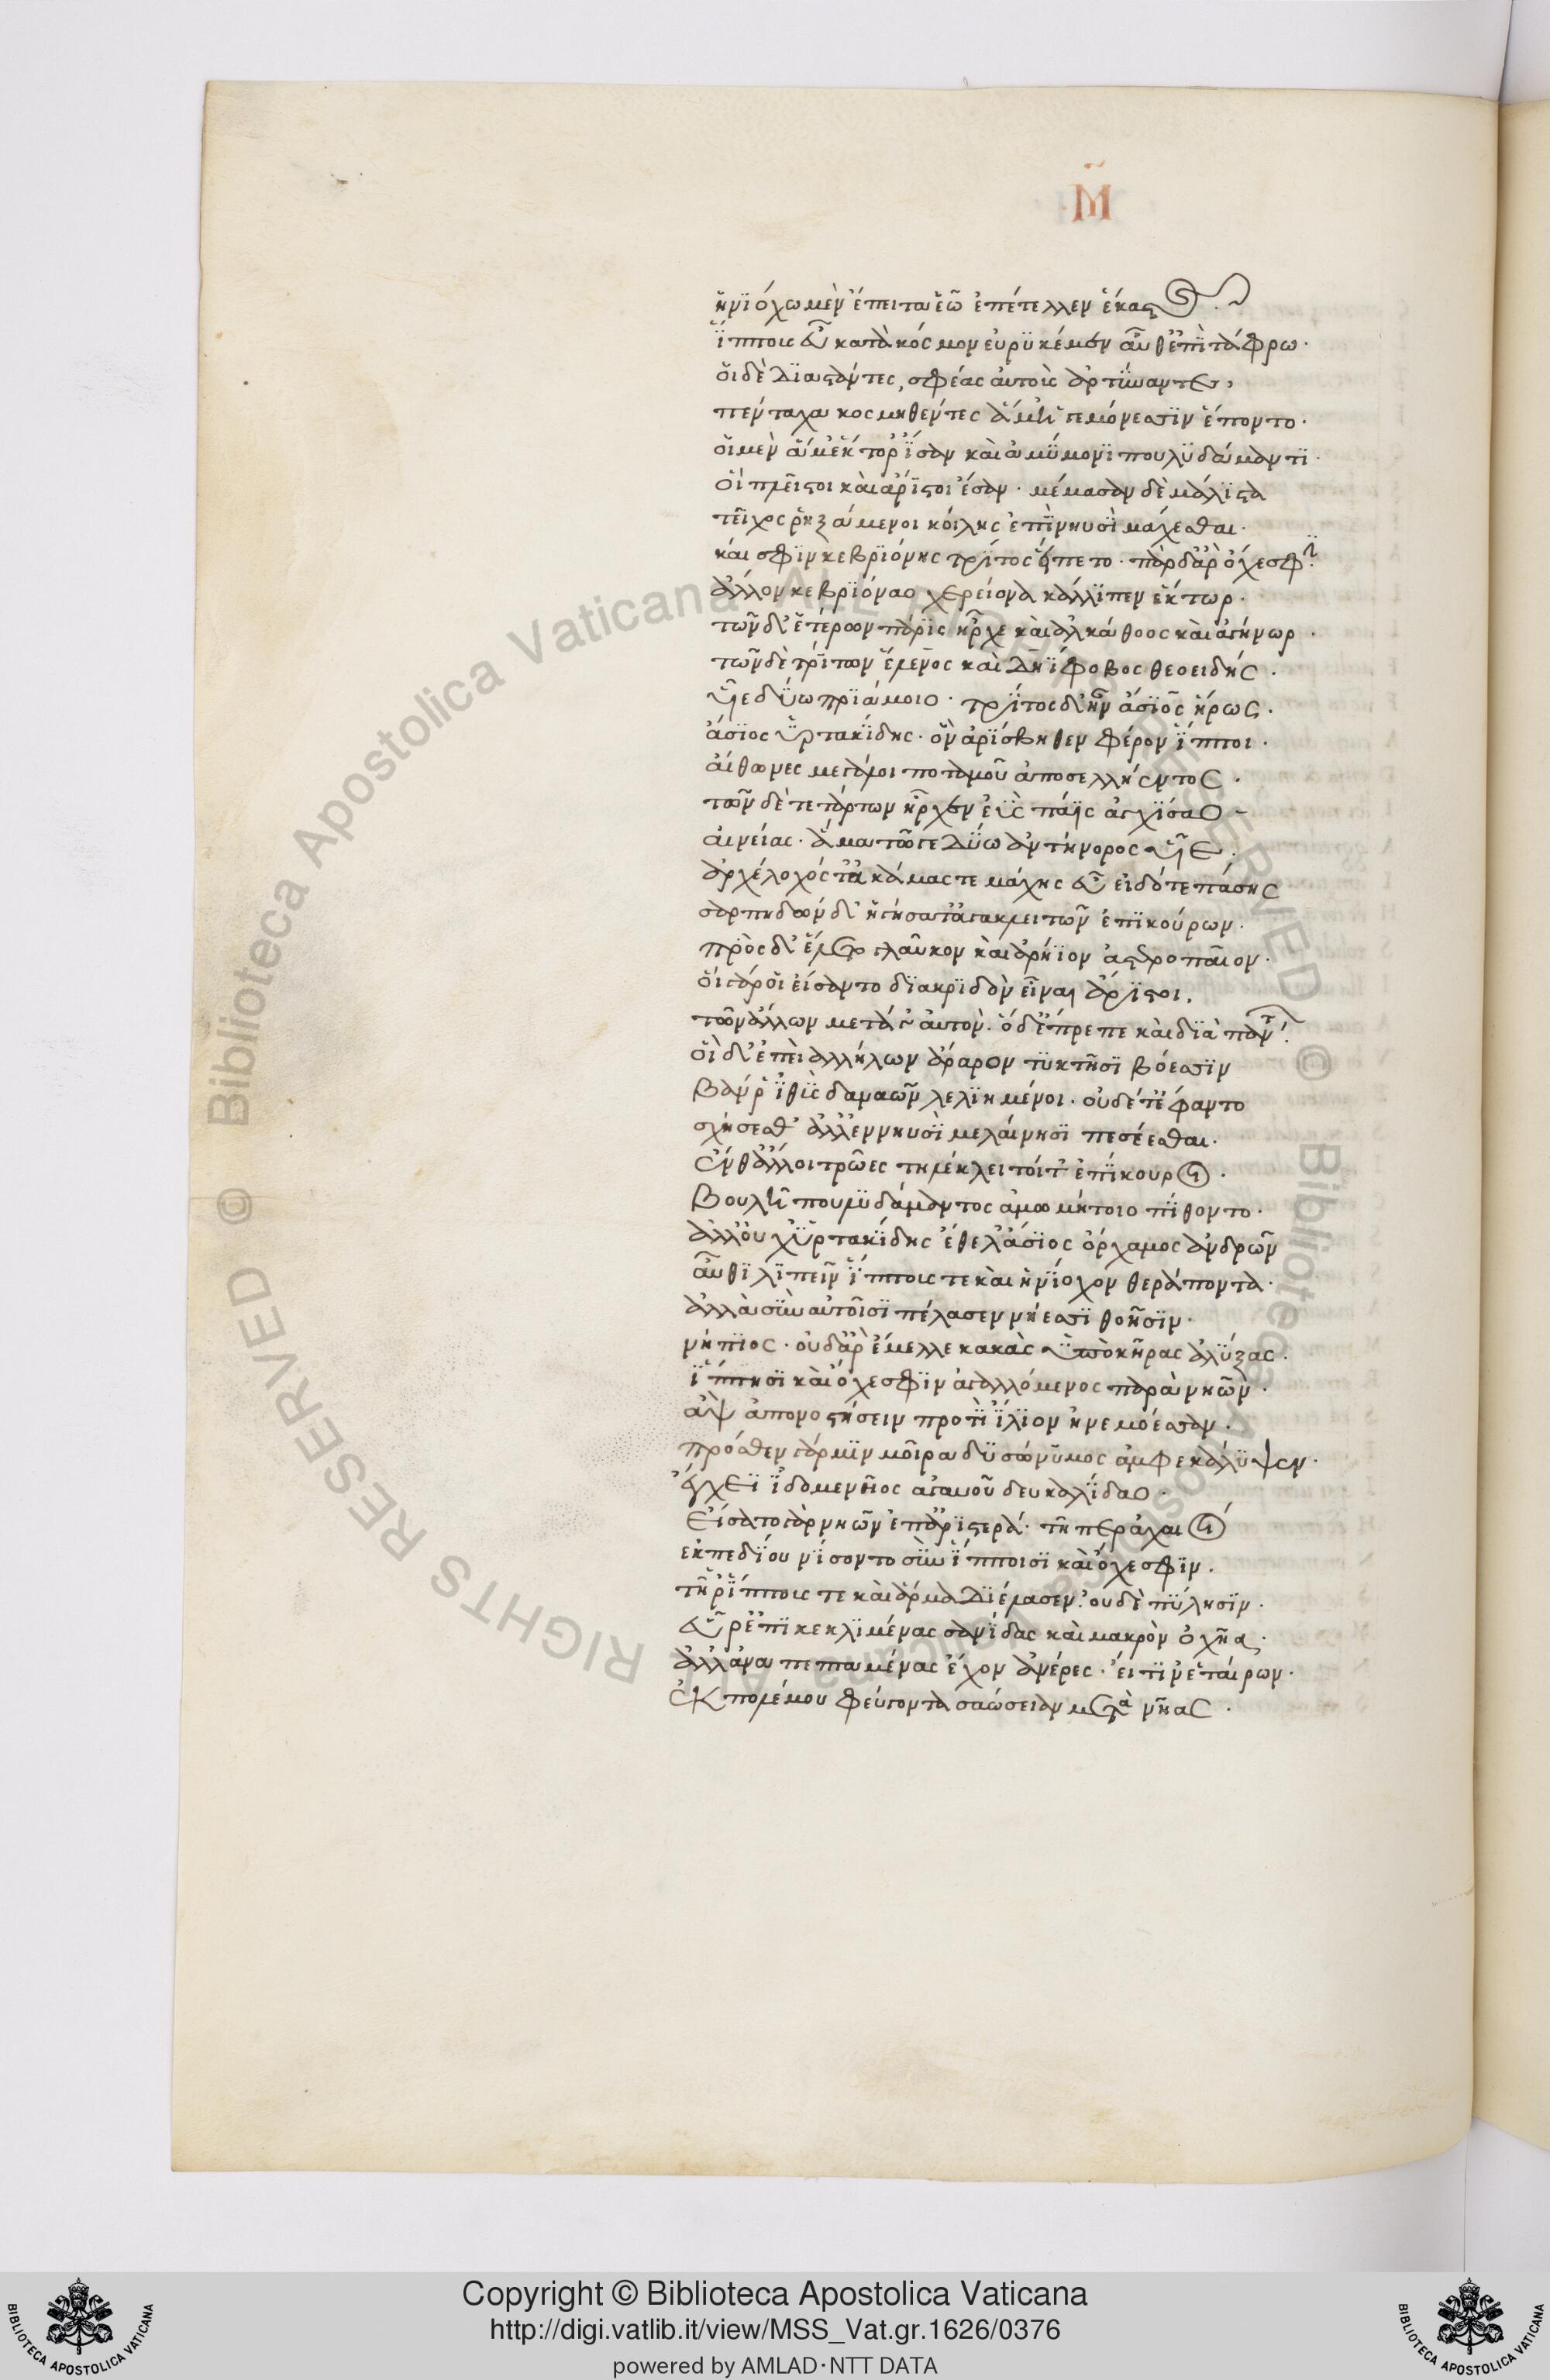 Μ̃
ἡνϊόχω μὲν ἔπειτα ἑῶ ἐπέτελλεν ἕκαστος·
ἵππους εὖ κατὰ κόσμον ἐρυκέμεν αὖθ ἐπὶ τάφρω·
οἱ δὲ διαστάντες, σφέας αὐτοὺς ἀρτύναντες,
πένταχα κοσμηθέντες ἅμ' ἡγεμόνεσσιν ἕποντο·
οἱ μὲν ἅμ' ἕκτορ' ἴσαν καὶ ἀμύμονι πουλυδάμαντι·
οἳ πλεῖστοι καὶ ἄριστοι ἔσαν· μέμασαν δὲ μάλιστα
τεῖχος ῥηξάμενοι κοίλης ἐπὶ νηυσὶ μάχεσθαι·
καί σφιν κεβριόνης τρίτος εἵπετο· πὰρ δ' ἄρ' ὄχεσφι
ἄλλον κεβριόναο χερείονα κάλλιπεν ἕκτωρ·
τῶν δ' ἑτέρων πάρις ἦρχε καὶ ἀλκάθοος καὶ ἀγήνωρ·
τῶν δὲ τρίτων ἕλενος καὶ δηΐφοβος θεοειδής·
υἷε δύω πριάμοιο· τρίτος δ' ἦν ἄσιος ἥρως·
ἄσιος ὑρτακίδης· ὃν ἀρίσβηθεν φέρον ἵπποι·
αἴθωνες μεγάλοι ποταμοῦ ἀπο σελλήεντος·
τῶν δὲ τετάρτων ἦρχεν ἐῢς πάϊς ἀγχίσαο
αἰνείας· ἅμα τῶγε δύω ἀντήνορος υἷε·
ἀρχέλοχός τ' ἀκάμας τε μάχης εὖ εἰδότε πάσης
σαρπηδὼν δ' ἡγήσατ' ἀγακλειτῶν ἐπικούρων·
πρὸς δ' ἕλετο γλαῦκον καὶ ἀρήϊον ἀστεροπαῖον·
οἱ γάρ οἱ εἴσαντο διακριδὸν εἶναι ἄριστοι.
τῶν ἄλλων μετά γ' αὐτόν· ὁ δ' ἔπρεπε καὶ διὰ πάντων·
οἱ δ' ἐπεὶ ἀλλήλων ἄραρον τυκτῆσι βόεσσιν
βάν ῥ' ἰθὺς δαναῶν λελιημένοι· οὐδέ τ' ἔφαντο
σχήσεσθ' ἀλλ' ἐν νηυσὶ μελαίνησι πεσέεσθαι·
ἔνθ' ἄλλοι τρῶες τηλέκλειτοί τ' ἐπίκουροι·
βουλῆ πουλυδάμαντος ἀμωμήτοιο πίθοντο·
ἀλλ' οὐχ ὑρτακίδης ἔθελ' ἄσιος ὄρχαμος ἀνδρῶν
αὖθι λιπεῖν ἵππους τε καὶ ἡνίοχον θεράποντα·
ἀλλὰ σὺν αὐτοῖσι πέλασεν νήεσσι θοῇσιν·
νήπιος· οὐδ' ἄρ' ἔμελλε κακὰς ὑπὸ κῆρας ἀλύξας·
ἵπποισι καὶ ὄχεσφιν ἀγαλλόμενος παρὰ νηῶν·
ἂψ ἀπονοστήσειν προτὶ ἴλιον ἠνεμόεσσαν·
πρόσθεν γάρ μιν μοῖρα δυσώνυμος ἀμφεκάλυψεν·
ἔγχεϊ ἰδομενῆος ἀγαυοῦ δευκαλίδαο·
εἴσατο γὰρ νηῶν ἐπ' ἀριστερά· τῆ περ ἀχαιοί
ἐκ πεδίου νίσοντο σὺν ἵπποισι καὶ ὄχεσφιν·
τῆ ῥ' ἵππους τε καὶ ἅρμα διέλασεν· οὐδὲ πύλησιν·
εὗρ' ἐπικεκλιμένας σανίδας καὶ μακρὸν ὀχῆα·
ἀλλ' ἀναπεπταμένας ἔχον ἀνέρες· εἴ τιν' ἑταίρων·
ἐκ πολέμου φεύγοντα σαώσειαν μετὰ νῆας·
Copyright © Biblioteca Apostolica Vaticana
http://digi.vatlib.it/view/MSS_Vat.gr.1626/0376
powered by AMLAD·NTT DATA